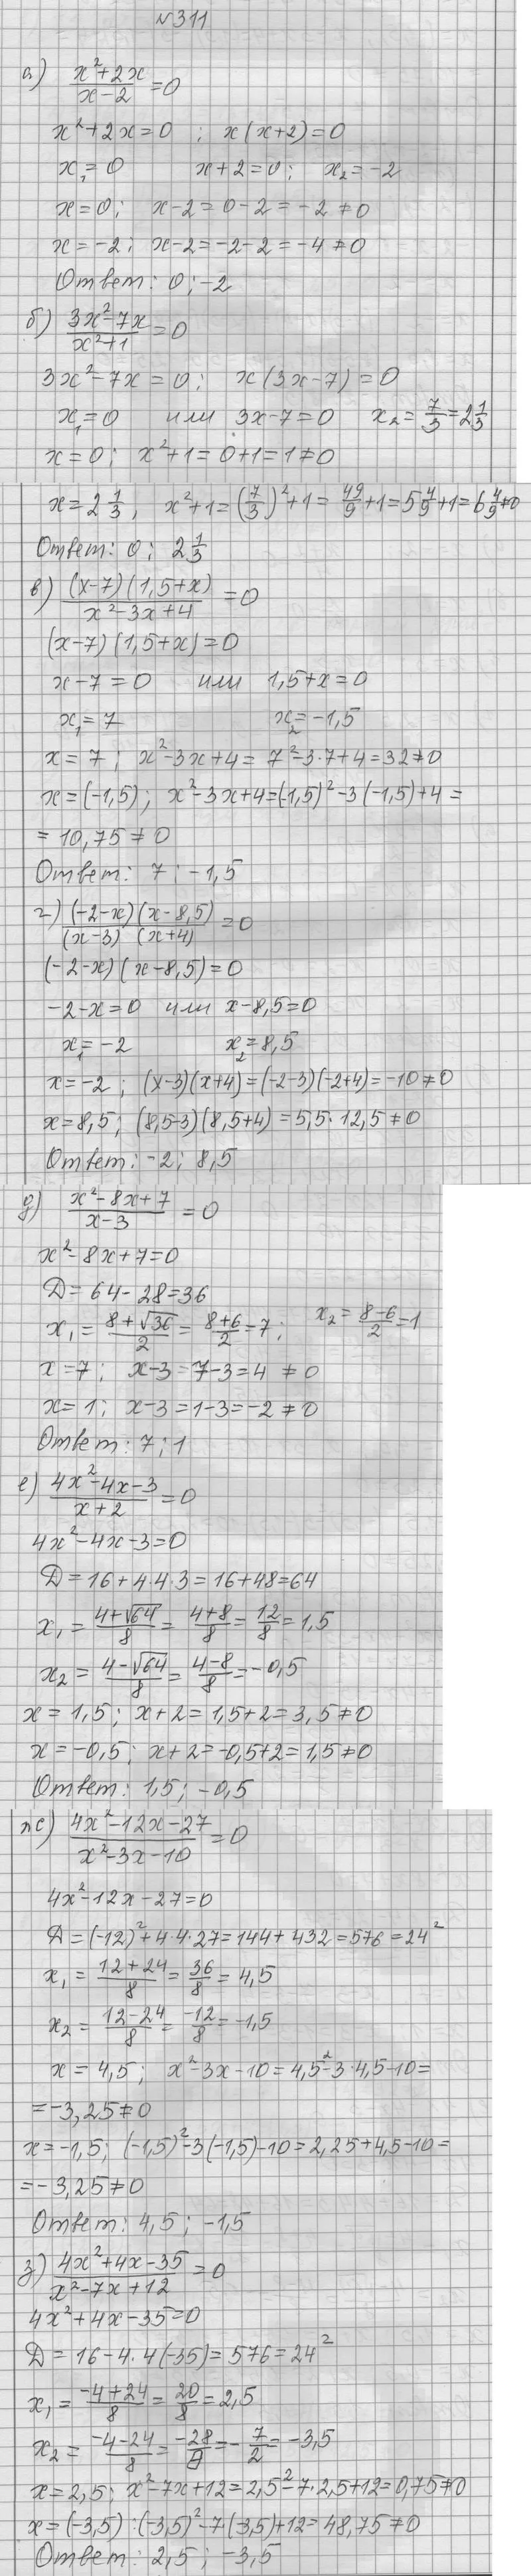 №311
а) (x²+2x)/(x-2) =0
x²+2x=0 ; x(x+2)=0
x₁=0 x+2=0; x₂=-2
x=0; x-2=0-2=-2≠0
x=-2; x-2=-2-2=-4≠0
Ответ: 0; -2
б) (3x²-7x)/(x²+1) =0
3x²-7x=0; x(3x-7)=0
x₁=0 или 3x-7=0 x₂=7/3=2 1/3
x=0; x²+1=0+1=1≠0
x=2 1/3, x²+1=(7/3)²+1=49/9+1=5 4/9+1=6 4/9≠0
Ответ: 0; 2 1/3
в) (x-7)(1,5+x)/(x²-3x+4) =0
(x-7)(1,5+x)=0
x-7=0 или 1,5+x=0
x₁=7 x₂=-1,5
x=7; x²-3x+4=7²-3·7+4=32≠0
x=(-1,5); x²-3x+4=(-1,5)²-3(-1,5)+4=
=10,75≠0
Ответ: 7; -1,5
г) (-2-x)(x-8,5)/(x-3)(x+4) =0
(-2-x)(x-8,5)=0
-2-x=0 или x-8,5=0
x₁=-2 x₂=8,5
x=-2; (x-3)(x+4)=(-2-3)(-2+4)=-10≠0
x=8,5; (8,5-3)(8,5+4)=5,5·12,5≠0
Ответ: -2; 8,5
д) (x²-8x+7)/(x-3) =0
x²-8x+7=0
D=64-28=36
x₁=(8+√36)/2=(8+6)/2=7; x₂=(8-6)/2=1
x=7; x-3=7-3=4≠0
x=1; x-3=1-3=-2≠0
Ответ: 7; 1
е) (4x²-4x-3)/(x+2) =0
4x²-4x-3=0
D=16+4·4·3=16+48=64
x₁=(4+√64)/8=(4+8)/8=12/8=1,5
x₂=(4-√64)/8=(4-8)/8=-0,5
x=1,5; x+2=1,5+2=3,5≠0
x=-0,5; x+2=-0,5+2=1,5≠0
Ответ: 1,5; -0,5
ж) (4x²-12x-27)/(x²-3x-10) =0
4x²-12x-27=0
D=(-12)²+4·4·27=144+432=576=24²
x₁=(12+24)/8=36/8=4,5
x₂=(12-24)/8=-12/8=-1,5
x=4,5; x²-3x-10=4,5²-3·4,5-10=
=-3,25≠0
x=-1,5; (-1,5)²-3(-1,5)-10=2,25+4,5-10=
=-3,25≠0
Ответ: 4,5; -1,5
з) (4x²+4x-35)/(x²-7x+12) =0
4x²+4x-35=0
D=16-4·4(-35)=576=24²
x₁=(-4+24)/8=20/8=2,5
x₂=(-4-24)/8=-28/8=-7/2=-3,5
x=2,5; x²-7x+12=2,5²-7·2,5+12=0,75≠0
x=(-3,5); (-3,5)²-7(-3,5)+12=48,75≠0
Ответ: 2,5; -3,5